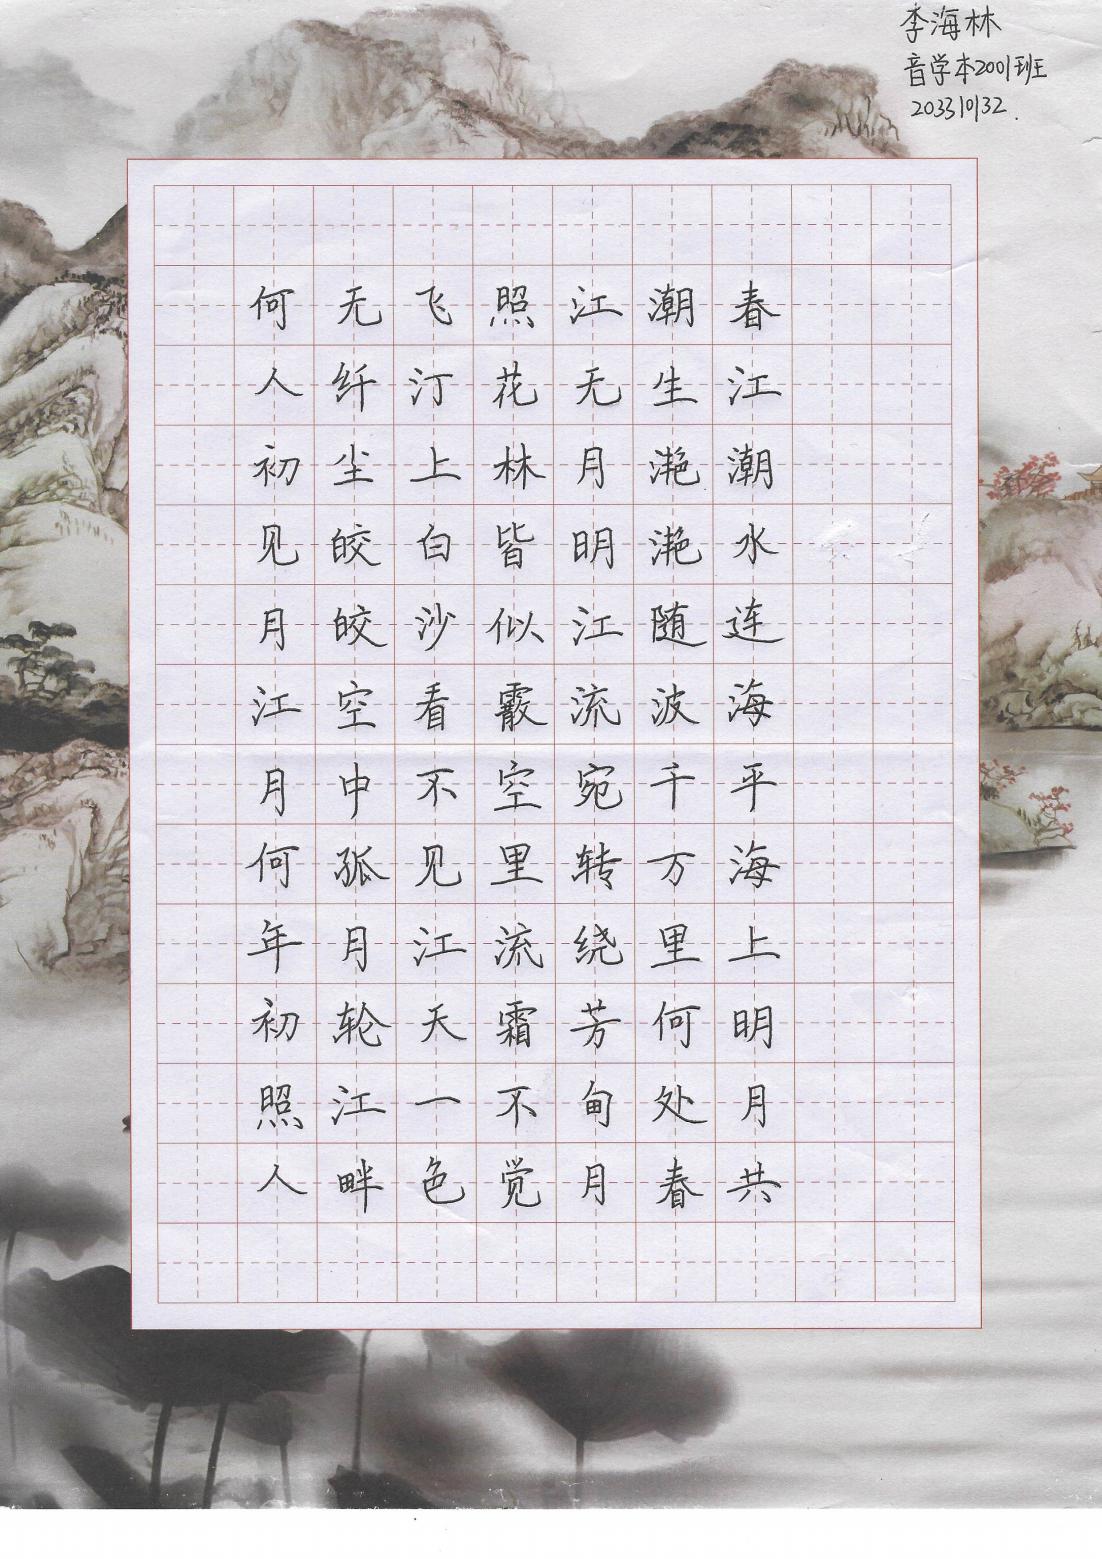 李海林
音学本2001班
203310132.
春江潮水连海平海上明月共
潮生滟滟随波千万里何处春
江无月明江流宛转绕芳甸月
照花林皆似霰空里流霜不觉
飞汀上白沙看不见江天一色
无纤尘皎皎空中孤月轮江畔
何人初见月江月何年初照人